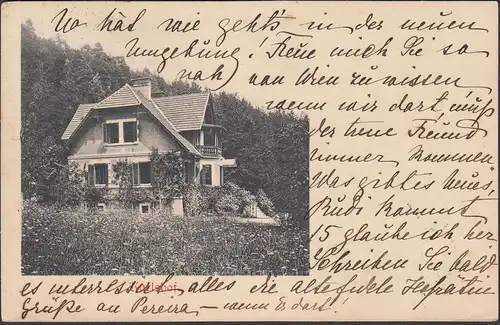 wie geht's in der neuen
Umgebung! Freue mich Sie so
nah von Wien zu wissen
wenn wir dort muß
der treue Freund
immer kommen
Was gibt es neues,
Rudi kommt
15 glaube ich her
Schreiben Sie bald
es interressirt alles die
Grüße an Pereira – wenn Er dort!